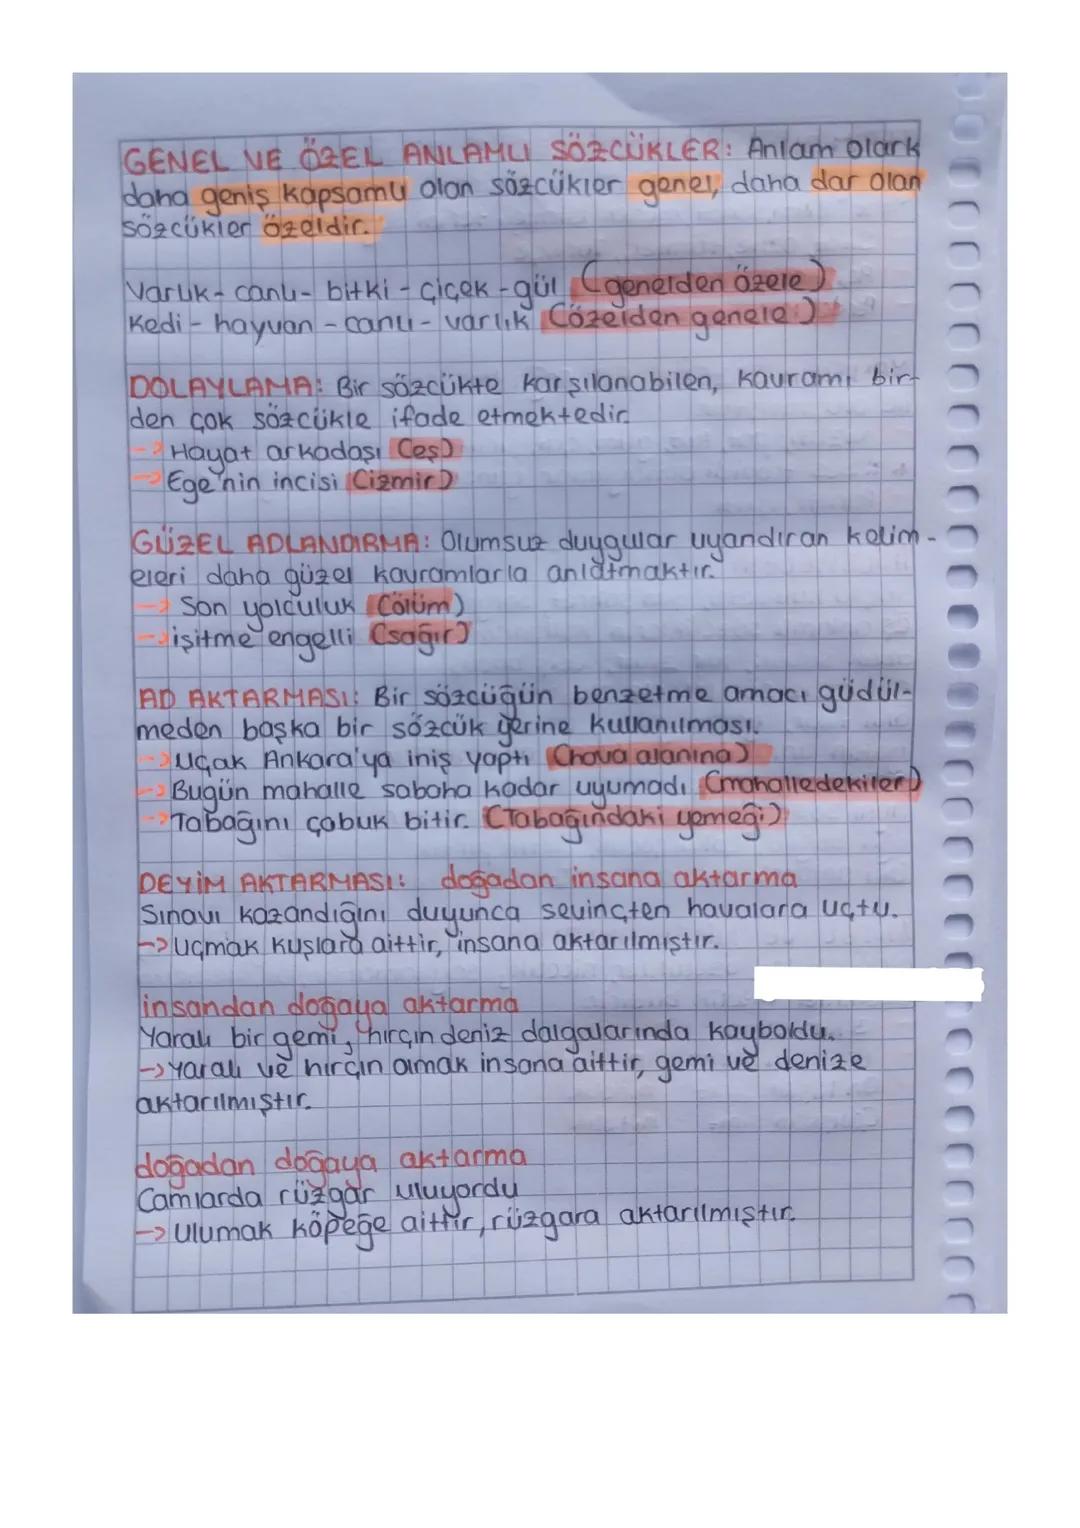 GENEL VE ÖZEL ANLAMLI SÖZCÜKLER: Anlam olark
daha geniş kapsamlı olan sözcükler genel, daha dar olan
sözcükler özeldir.
Varlık - canlı - bitki - çiçek - gül (genelden özele)
Kedi - hayvan - canlı - varlık (özelden genele)
DOLAYLAMA: Bir sözcükte karşılanabilen, kavramı bir-
den çok sözcükle ifade etmektedir.
→ Hayat arkadaşı (eş)
→ Ege'nin incisi (izmir)
GÜZEL ADLANDIRMA: Olumsuz duygular uyandıran kelim-
eleri daha güzel kavramlarla anlatmaktır.
→ Son yolculuk (ölüm)
→ işitme engelli (sağır)
AD AKTARMASI: Bir sözcüğün benzetme amacı güdül-
meden başka bir sözcük yerine kullanılması.
→ Uçak Ankara'ya iniş yaptı (hava alanına)
→ Bugün mahalle sabaha kadar uyumadı (mahalledekiler)
→ Tabağını çabuk bitir. (Tabağındaki yemeği)
DEYİM AKTARMASI: doğadan insana aktarma
Sınavı kazandığını duyunca sevinçten havalara uçtu.
→ Uçmak kuşlara aittir, insana aktarılmıştır.
insandan doğaya aktarma
Yaralı bir gemi, hırçın deniz dalgalarında kayboldu.
→ Yaralı ve hırçın olmak insana aittir, gemi ve denize
aktarılmıştır.
doğadan doğaya aktarma
Camlarda rüzgar uluyordu
→ Ulumak köpeğe aittir, rüzgara aktarılmıştır.